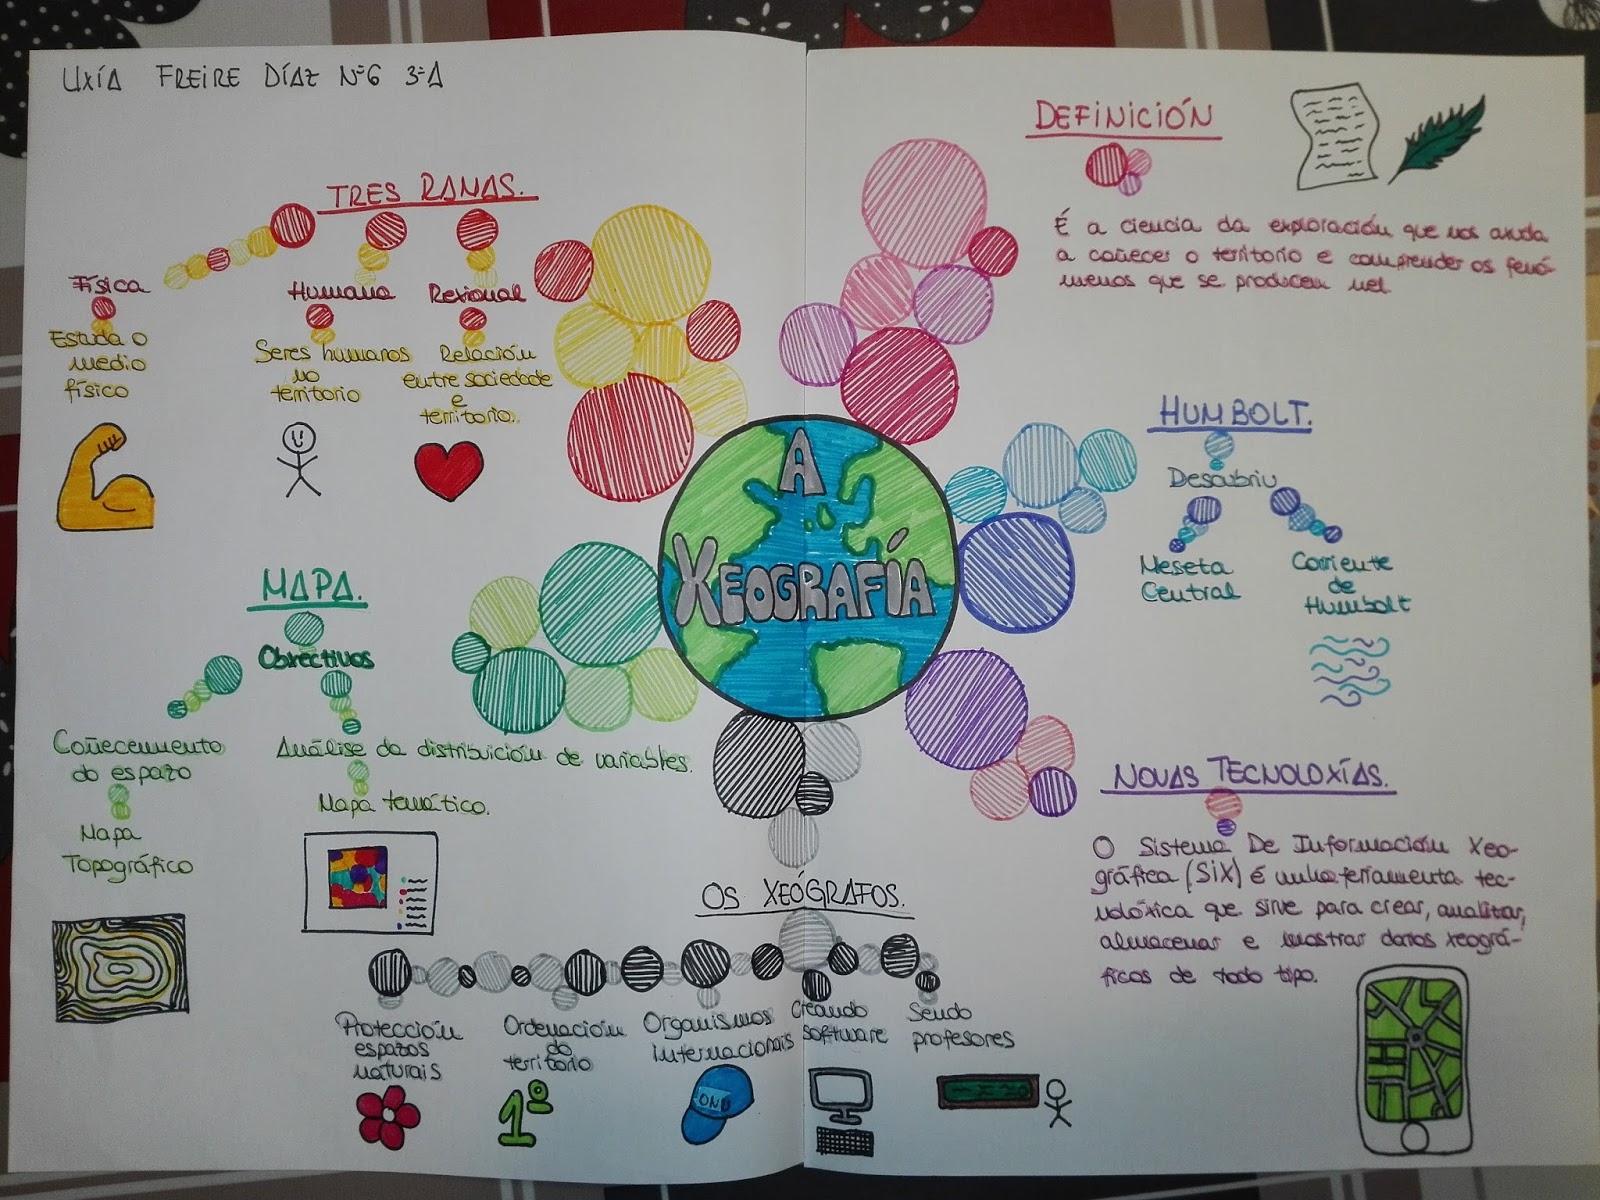 UXÍA FREIRE DÍAZ Nº6 3ºA
TRES RAMAS.
Física
Estuda o
medio
físico
Humana
Seres humanos
no
territorio
Rexional
Relación
entre sociedade
e
territorio.
DEFINICIÓN
É a ciencia da exploración que nos axuda
a coñecer o territorio e comprender os fenó-
menos que se producen nel
HUMBOLT.
Descubriu
Meseta
Central
Corriente
de
Humbolt
A
XEOGRAFÍA
MAPA.
Obxectivos
Coñecemento
do espazo
Mapa
Topográfico
Análise da distribución de variables.
Mapa temático.
NOVAS TECNOLOXÍAS.
O Sistema De Información Xeo-
gráfica (SIX) é unha ferramenta tec-
nolóxica que sirve para crear, analitar,
almacenar e mostrar datos xeográ-
ficos de todo tipo.
OS XEÓGRAFOS.
Protección
espazos
naturais
Ordenación
do
territorio
1º
Organismos
internacionais
ONU
Creando
software
Sendo
profesores